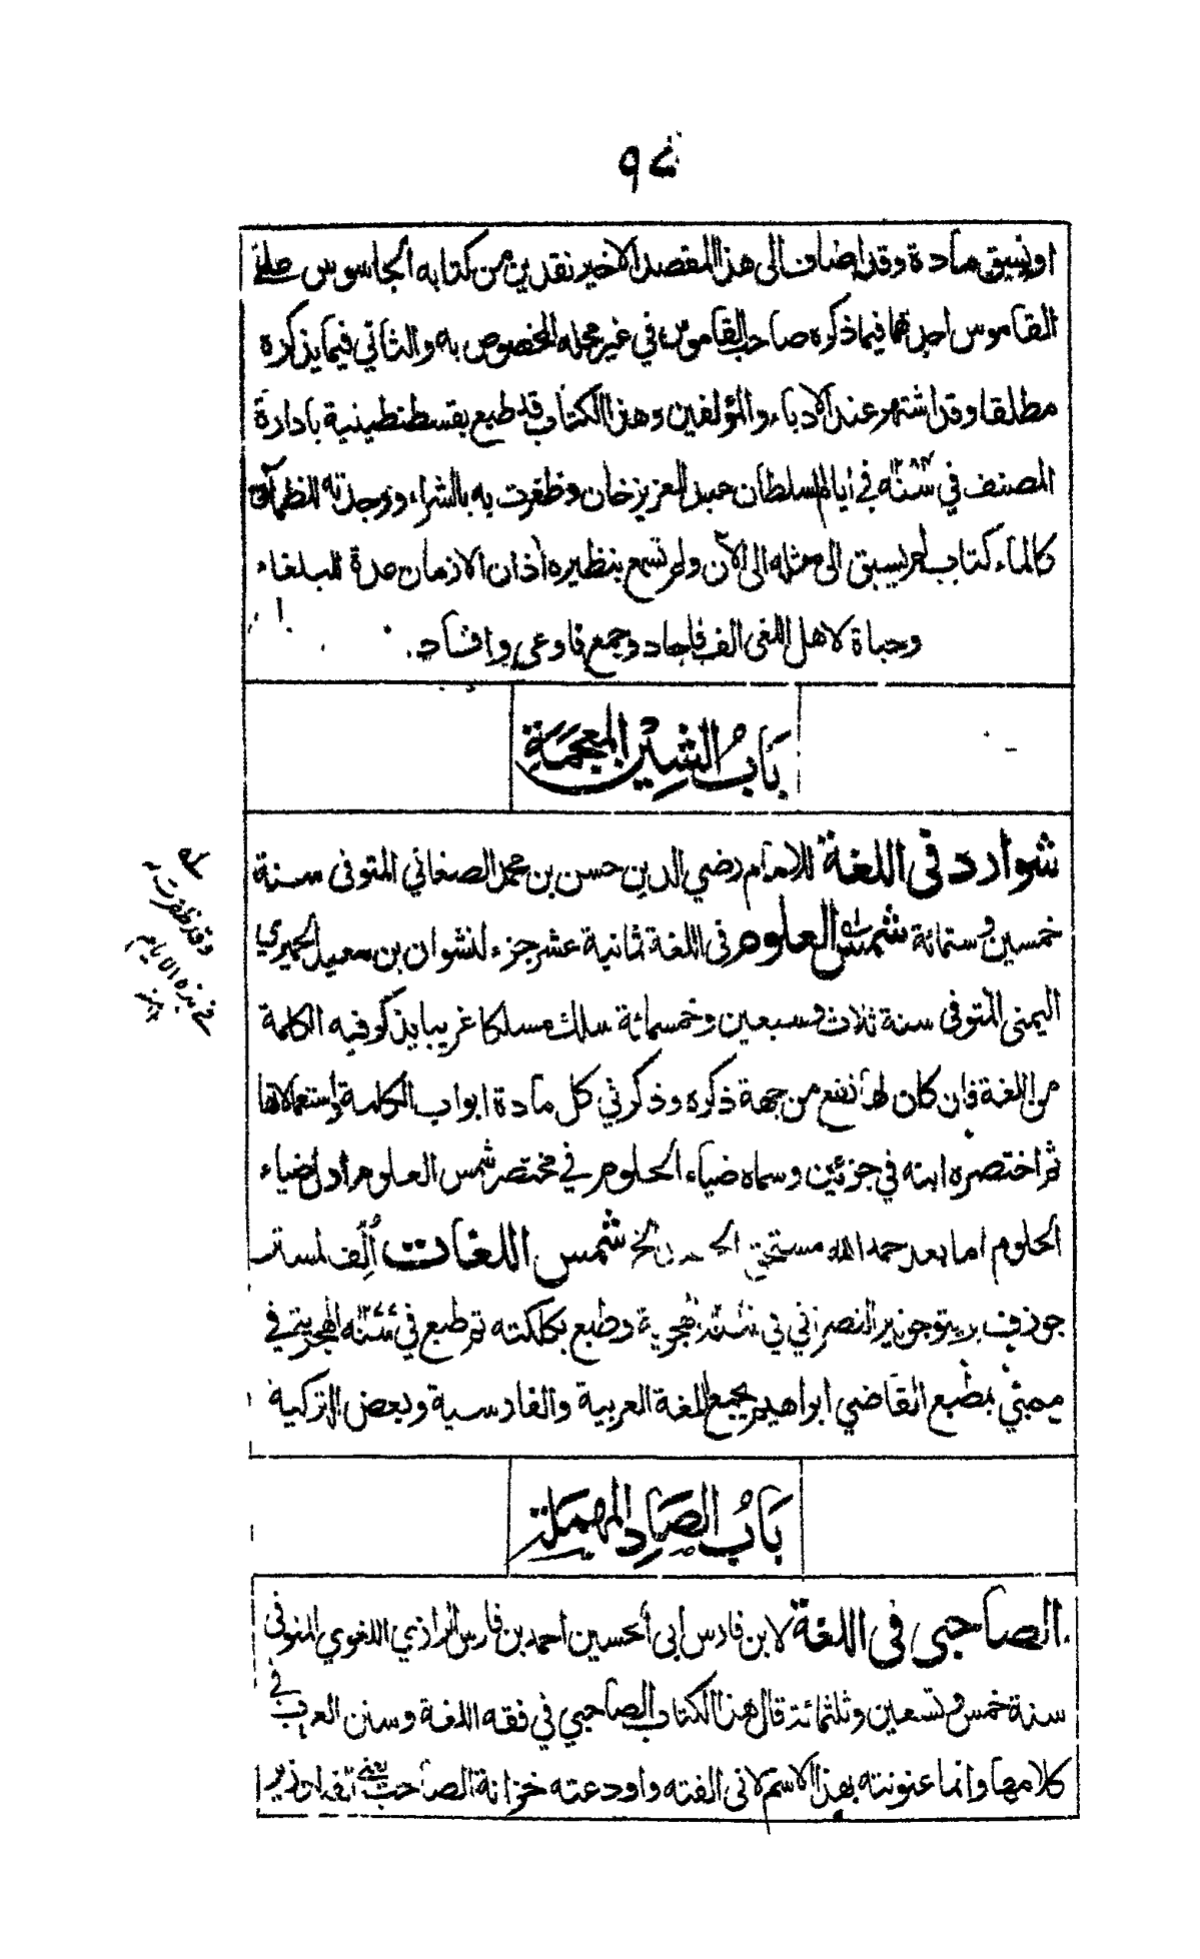 او نسق مادة وقد اضاف الى هذا المقصد الاخير نقدين من كتابه الجاسوس على
القاموس احدهما فيما ذكره صاحب القاموس في غير محله المخصوص به والثاني فيما يذكره
مطلقا وقد اشتهر عند الادباء والمؤلفين وهذا الكتاب قد طبع بقسطنطينية بادارة
المصنف في سنة في أيام السلطان عبد العزيز خان وظفرت به بالشراء ووجدته للظمآن
كالماء كتاب لم يسبق الى مثله الى الآن ولم تسمع بنظيره آذان الازمان عدة للبلغاء
وحباة لاهل اللغى الف فاجاد وجمع فاوعى وافاد.
بَابُ الشِيْنِ المُعجَمَةِ
شوارد فى اللغة للامام رضي الدين حسن بن محمد الصغاني المتوفى سنة
خمسين وستمائة شمس العلوم فى اللغة ثمانية عشر جزء لنشوان بن سعيد الحميري
اليمنى المتوفى سنة ثلاث وسبعين وخمسمائة سلك مسلكا غريبا يذكر فيه الكلمة
من اللغة فإن كان لها نفع من جهة ذكره وذكر في كل مادة ابواب الكلمة واستعمالاتها
ثم اختصره ابنه في جزئين وسماه ضياء الحلوم في مختصر شمس العلوم أول ضياء
الحلوم اما بعد حمد الله مستحق الحمد الخ شمس اللغات أُلِّف لمستر
جوزف بريتوجونير النصراني في هجرية وطبع بكلكته ثم طبع في سنة ١٢٧٧ الهجرية في
ممبئي بمطبع القاضي ابراهيم يجمع اللغة العربية والفارسية وبعض التركية
بَابُ الصَادِ المُهمَلة
الصاحبى فى اللغة لابن فارس أبى الحسين احمد بن فارس الرازي اللغوي المتوفى
سنة خمس وتسعين وثلثمائة قال هذا الكتاب الصاحبي في فقه اللغة وسنن العرب في
كلامها وانما عنونته بهذا الاسم لانى الفته واودعته خزانة الصاحب يعنى وزير
وقد ظفرت به
في هذه الايام